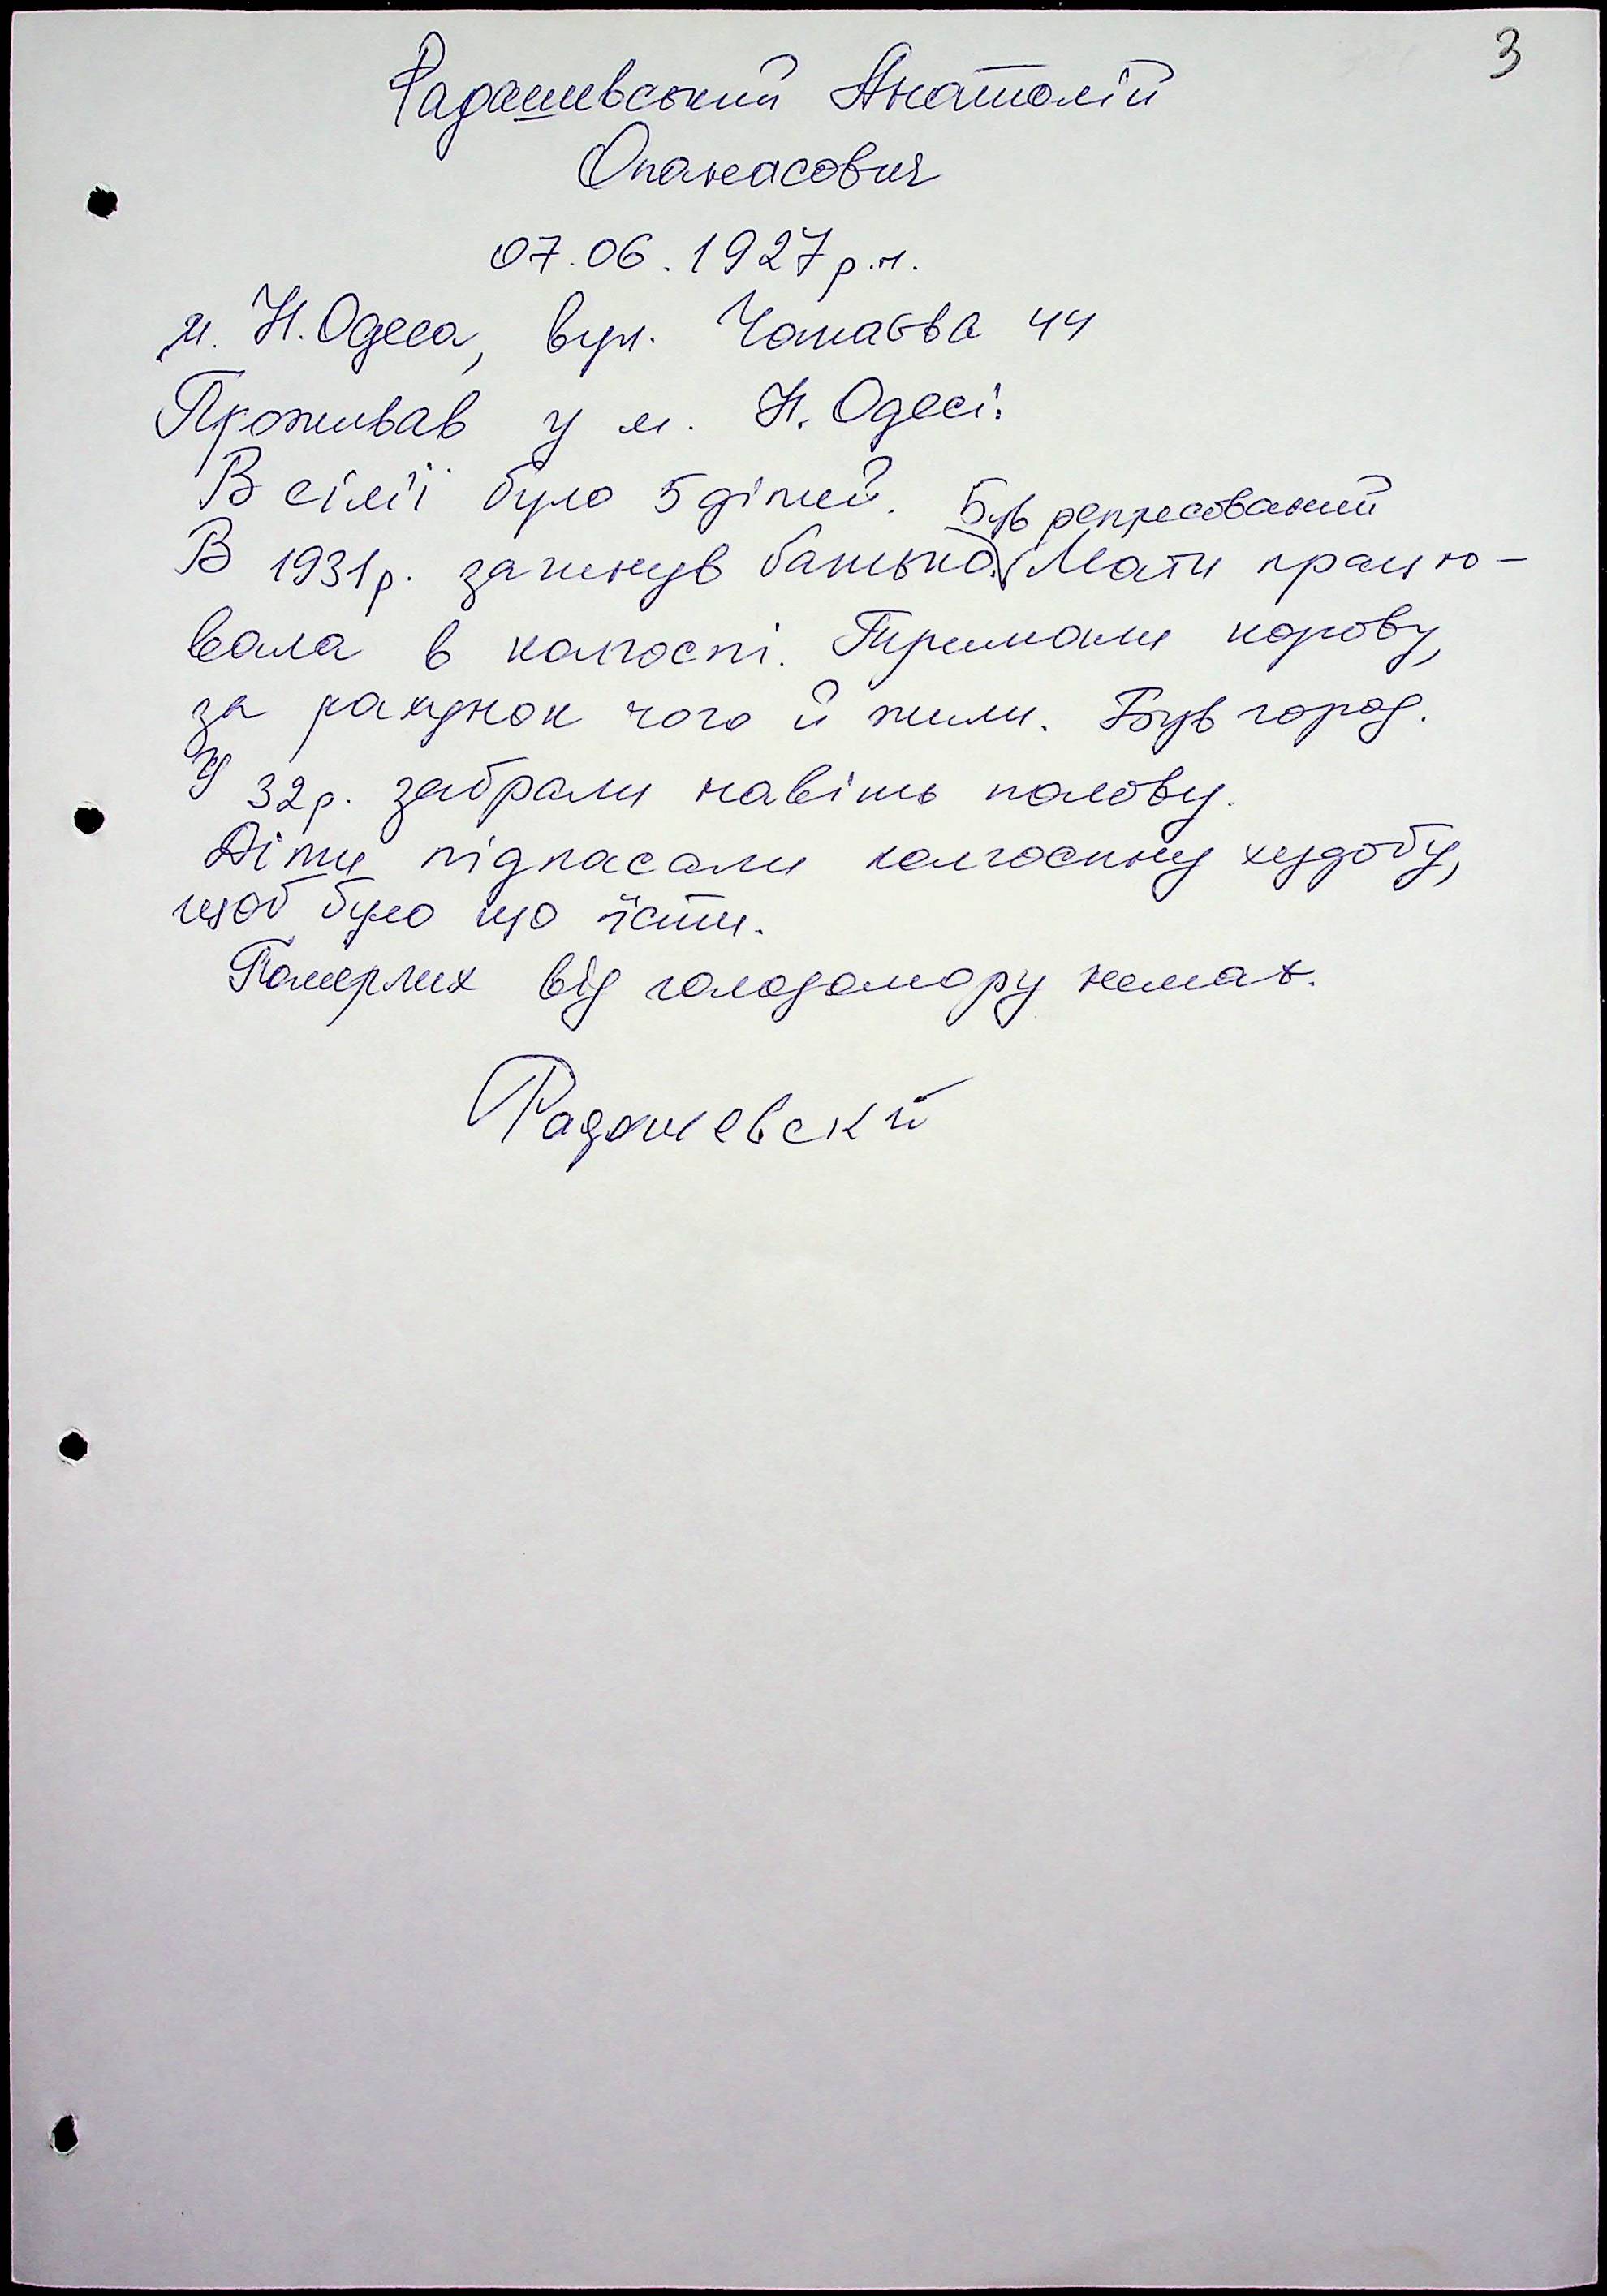 3
Радашевський Анатолій
Опанасович
07.06.1927р.н.
м. Н.Одеса, вул. Чапаєва 44
Проживав у м. Н.Одесі.
В сім'ї було 5 дітей. Був репресований
В 1931р. загинув батько. Мати працю-
вала в колгоспі. Тримали корову,
за рахунок чого й жили. Був город.
У 32р. забрали навіть полову.
Діти підпасали колгоспну худобу,
щоб було що їсти.
Померлих від голодомору немає.
Радашевский